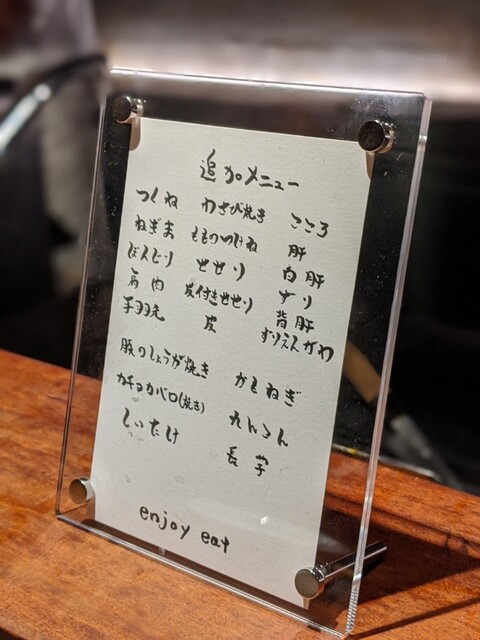 追加メニュー
つくね わさび焼き こころ
ねぎま もものつけね 肝
ぼんじり せせり 白肝
肩肉 皮付きせせり ずり
手羽先 皮 背肝
ずりえんがわ
豚のしょうが焼き かもねぎ
カチョカバロ(焼き) れんこん
しいたけ 長芋
enjoy eat